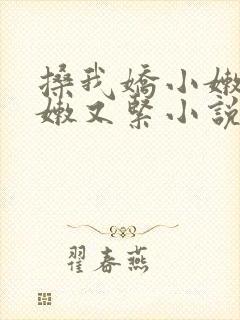 搡我嬌小嫩
嫩又緊小說
翟春燕